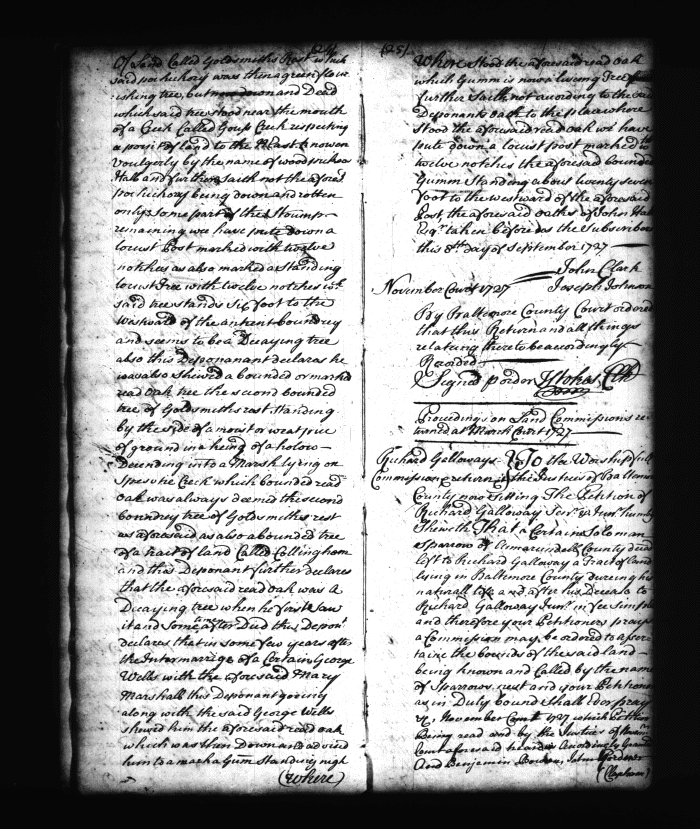 (24)
Of Land Called Goldsmiths Rest which
said pockickory was then a green flour
ishing tree, but now down and Dead
which said tree stood near the mouth
of a Creek Called Goufs Creek respecting
a point of land to the East knowen
voulgorly by the name of
Hall and further saith not the afores.d
pockickory being down and rotten
only some part of the Stoump
remaining we have pute down a
locust Post marked with twelve
notches as also marked a Standing
locust Tree with twelve notches wch
said tree stands Six foot to the
westward of the antient boundrey
and seems to be a Decaying tree
also this Deponanant declares he
was also shewed a bounded or marked
read oak tree the second bounded
tree of Goldsmiths rest standing
by the side of a moist or weat peice
of ground in a being of a holow
Decending into a Marsh lying on
Spesutie Creek which bounded read
oak was always deemed the second
boundrey tree of Goldsmiths rest
as aforesaid as also a bounded tree
of a tract of land Called Collingham
and this Deponant further declares
that the aforesaid read oak was a
Decaying tree when he first Saw
it and Some time after Died this Depont
declares that in some few years after
the Intermarrige of a Certain George
Wells with the aforesaid Mary
Marshall this Deponant goeing
along with the said George Wells
shewed him the aforesaid read oak
which was then Down and advised
him to mark a Gum Standing nigh
(Where)
(25)
Where stood the aforesaid read oak
which Gumm is now a liveing Tree
further Saith not acording to the said
Deponants oath to the place where
stood the aforesaid read oak we have
pute down a locust post marked
twelve notches the aforesaid bounded
Gumm Standing about twenty seven
foot to the westward of the aforesaid
Post, the aforesaid oathes of John Hall
Esqr taken before us the Subscribers
this 8th day of September 1727
John Clark
November Court 1727 Joseph Johnson
By Baltemore County Court ordered
that this Return and all things
relateing there to be acordingly
Recorded
Signed p order J Stokes Clk
Procedings on Land Commissions re-
turned at March Court 1727
Richard Galloways To the Worshipfull
Commission & return the Justices of Baltemore
County now Sitting The Petition of
Richard Galloway Senr & Junr humbly
Sheweth That a Certain Soloman
Sparrow of Annarundell County died
left to Richard Galloway a Tract of land
lying in Baltemore County dureing his
naturall life and after his Decease to
Richard Galloway Junr in fee simple
and therefore your Petitioners prays
a Commission may be ordered to ascer
taine the bounds of the said land
being known and Called by the name
of Sparrows nest and your Petitioners
as in Duty bound shall ever pray
&c November Court 1727 which Petition
Being read and by the Justices of
Court aforesaid heard is Acordingly Granted
And Benjamin Bowen, John
(Clapham)